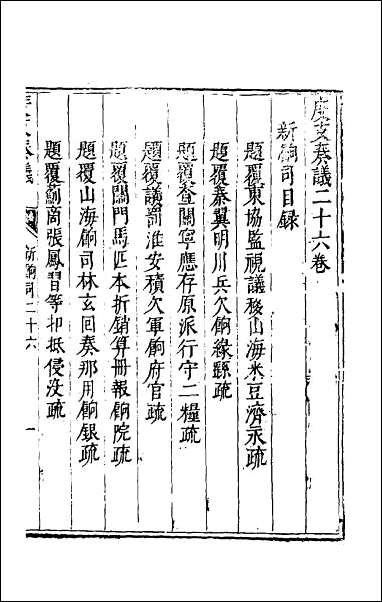 度支奏議二十六卷
新餉司目錄
題覆東協監視議發山海米豆濟永疏
題覆秦翼明川兵欠餉緣繇疏
題覆查關寧應存原派行守二糧疏
題覆議罰淮安積欠軍餉府官疏
題覆關門馬匹本折銷算冊報餉院疏
題覆山海餉司林玄回奏那用餉銀疏
題覆薊商張鳳習等扣抵侵沒疏
新餉司二十六
一